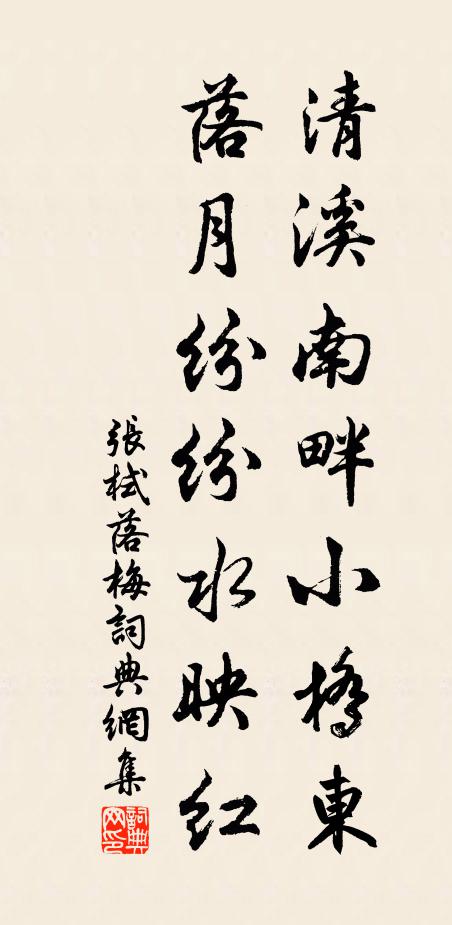 清溪南畔小橋東
落月紛紛水映紅
張栻落梅詞典網集
詞典网印